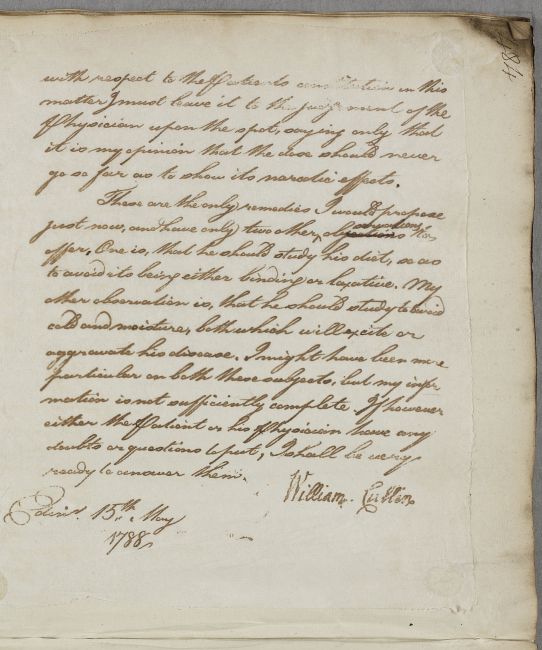 484
with respect to the Patients constitution in this
matter I must leave it to the judgement of the
Physician upon the spot, saying only that
it is my opinion that the dose should never
go so far as to show its narcotic effects.
These are the only remedies I would propose
observations
just now, and have only two other to
offer. One is, that he should study his diet, so as
to avoid its being either binding or laxative. My
other observation is, that he should study to avoid
cold and moisture, both which will excite or
aggravate his disease. I might have been more
particular on both these subjects, but my infor
mation is not sufficiently complete. If however
either the Patient or his Physician have any
doubts or questions to put, I shall be very
ready to answer them.
William Cullen
Edinr. 15th. May
1788